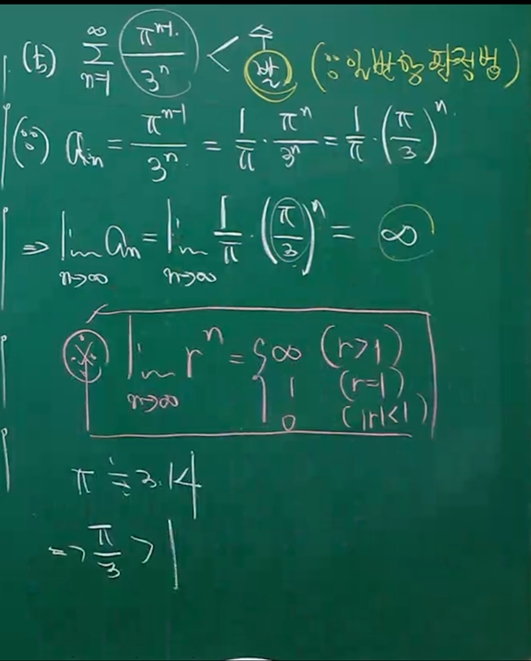 (b) ∑_{n=1}^{∞} π^{n-1}/3^n < 수 발 (∵ 일반항판정법)
(∵) a_n = π^{n-1}/3^n = 1/π · π^n/3^n = 1/π · (π/3)^n
⇒ lim_{n→∞} a_n = lim_{n→∞} 1/π · (π/3)^n = ∞
※ lim_{n→∞} r^n = { ∞ (r>1)
1 (r=1)
0 (|r|<1)
π ≒ 3.14
⇒ π/3 > 1